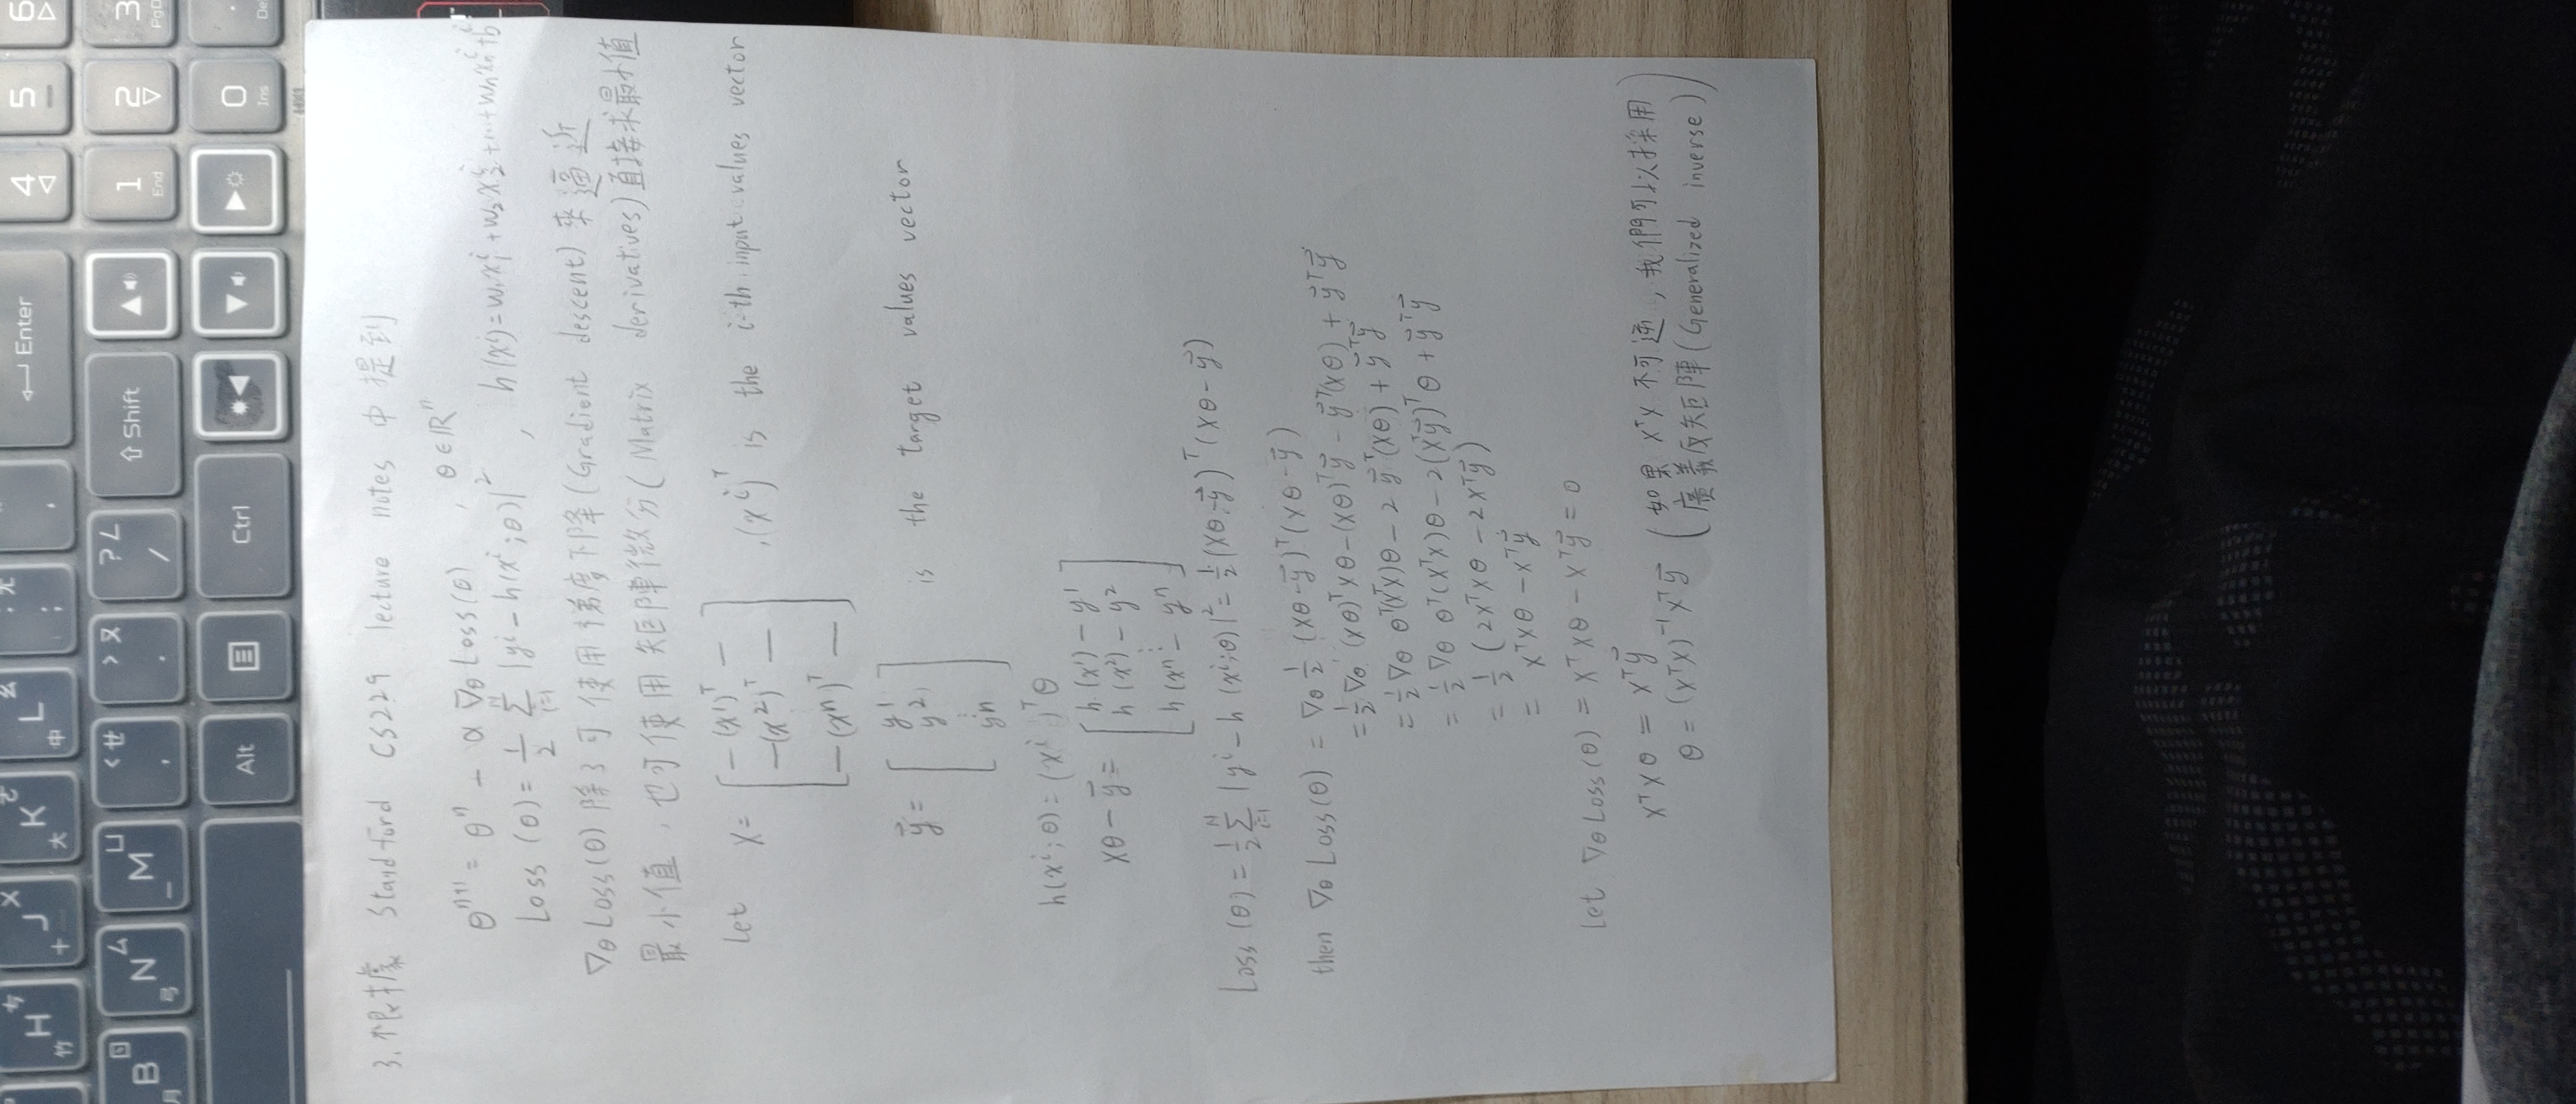 H ㄘ 竹
J X 十
K ㄜ 大
L ㄠ 中
; ㄤ
← Enter
4 ◁
5
6 ▷
B ㄖ 月
N ㄙ 弓
M ㄩ
< ㄝ ,
> ㄡ .
? ㄥ /
⇧ Shift
▲
1 End
2 ▽
3 PgD
Alt
Ctrl
◀
▼
▶
0 Ins
. De
3. 根據 Standford CS229 lecture notes 中提到
θⁿ⁺¹ = θⁿ - α ∇θ Loss(θ) , θ ∈ ℝⁿ
Loss (θ) = 1/2 Σ_{i=1}^{N} |y^i - h(x^i ; θ)|² , h(x^i) = w₁x₁^i + w₂x₂^i + ... + wₙxₙ^i + b^i
∇θ Loss(θ) 除了可使用梯度下降(Gradient descent)來逼近
最小值,也可使用矩陣微分(Matrix derivatives)直接求最小值
let X = [ — (x¹)ᵀ — , — (x²)ᵀ — , — (xⁿ)ᵀ — ] , (x^i)ᵀ is the i-th input values vector
y⃗ = [ y¹ y² ⋮ yⁿ ] is the target values vector
h(x^i ; θ) = (x^i)ᵀθ
Xθ - y⃗ = [ h(x¹) - y¹ h(x²) - y² ⋮ h(xⁿ - yⁿ ]
Loss (θ) = 1/2 Σ_{i=1}^{N} |y^i - h (x^i ; θ)|² = 1/2 (Xθ - y⃗)ᵀ(Xθ - y⃗)
then ∇θ Loss(θ) = ∇θ 1/2 (Xθ - y⃗)ᵀ(Xθ - y⃗)
= 1/2 ∇θ (Xθ)ᵀXθ - (Xθ)ᵀy⃗ - y⃗ᵀ(Xθ) + y⃗ᵀy⃗
= 1/2 ∇θ θᵀ(XᵀX)θ - 2 y⃗ᵀ(Xθ) + y⃗ᵀy⃗
= 1/2 ∇θ θᵀ(XᵀX)θ - 2(Xᵀy⃗)ᵀθ + y⃗ᵀy⃗
= 1/2 (2XᵀXθ - 2Xᵀy⃗)
= XᵀXθ - Xᵀy⃗
let ∇θ Loss(θ) = XᵀXθ - Xᵀy⃗ = 0
XᵀXθ = Xᵀy⃗
θ = (XᵀX)⁻¹Xᵀy⃗ (如果 XᵀX 不可逆,我們可以採用
廣義反矩陣(Generalized inverse))